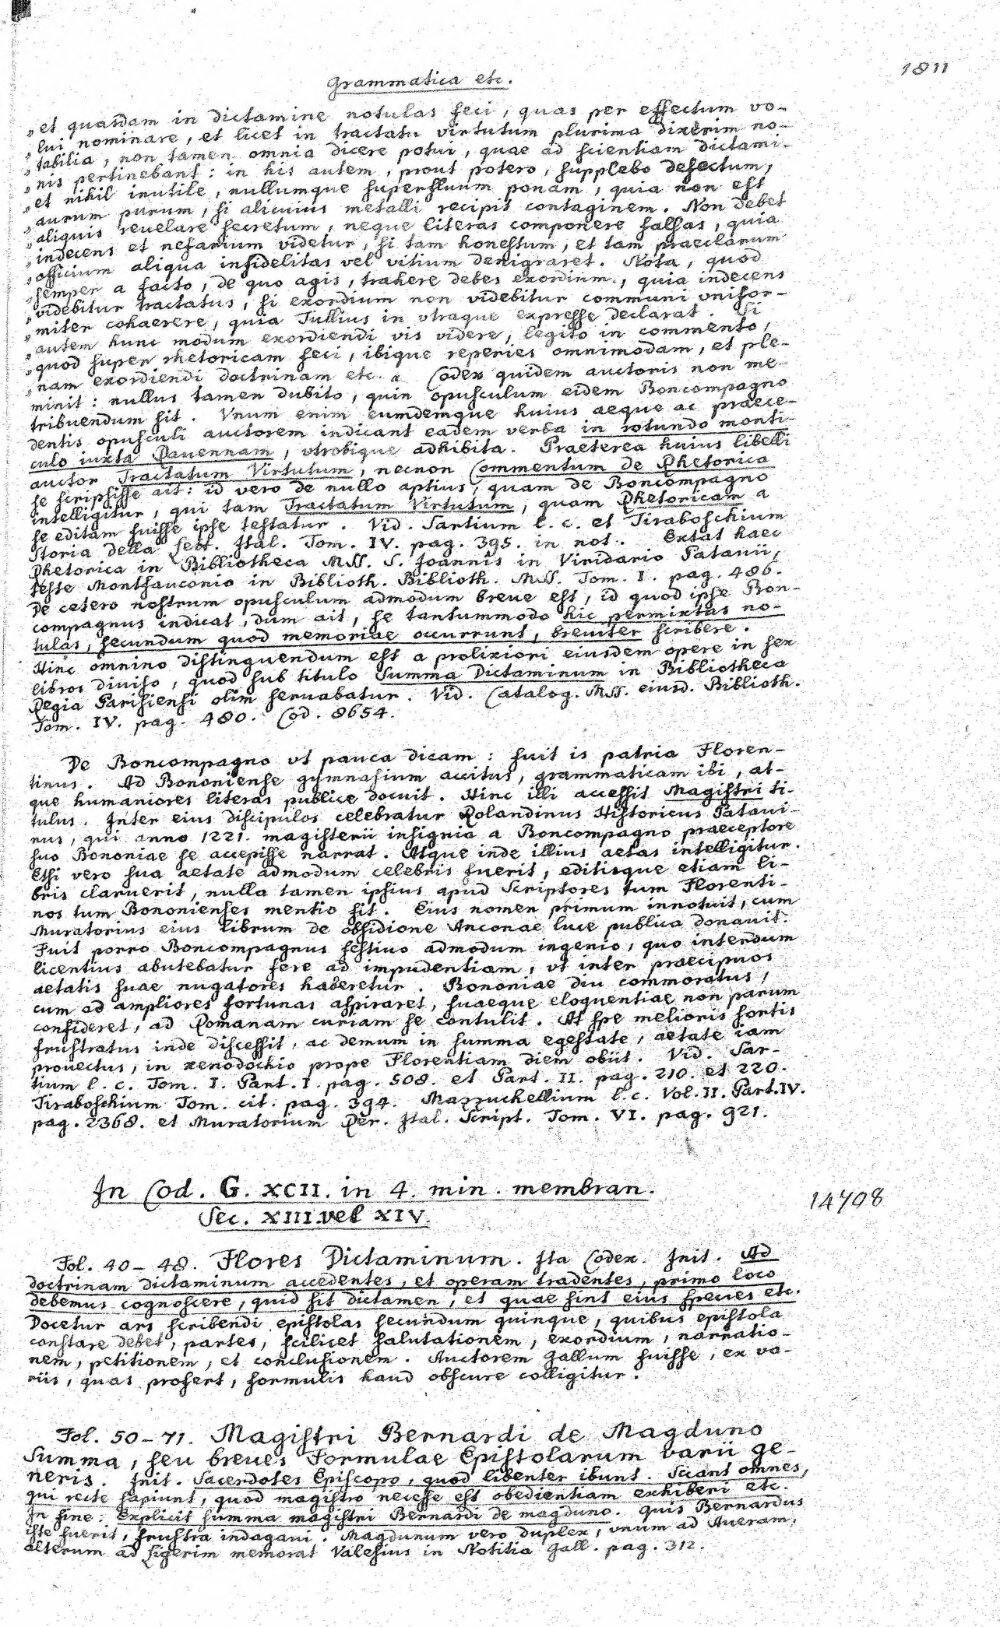 Grammatica etc.
1811
„ et quasdam in dictamine notulas feci, quas per effectum vo-
„ lui nominare, et licet in tractatu virtutum plurima dixerim no-
„ tabilia, non tamen omnia dicere potui, quae ad scientiam dictami-
„ nis pertinebant: in his autem, prout potero, supplebo defectum,
„ et nihil inutile, nullumque superfluum ponam, quia non est
„ aurum purum, si alicuius metalli recipit contaginem. Non debet
„ aliquis reuelare secretum, neque literas componere falsas, quia
„ indecens et nefarium videtur, si tam honestum, et tam praeclarum
„ officium aliqua infidelitas vel vitium denigraret. Nota, quod
„ semper a facto, de quo agis, trahere debes exordium, quia indecens
„ videbitur tractatus, si exordium non videbitur communi unifor-
„ miter cohaerere, quia Tullius in utraque expresse declarat. Si
„ autem hunc modum exordiendi vis videre, legito in commento,
„ quod super rhetoricam feci, ibique reperies omnimodam, et ple-
„ nam exordiendi doctrinam etc. „ Codex quidem auctoris non me-
minit: nullus tamen dubito, quin opusculum eidem Boncompagno
tribuendum sit. Vnum enim eumdemque huius aeque ac praece-
dentis opusculi auctorem indicant eadem verba in rotundo monti-
culo iuxta Rauennam, utrobique adhibita. Praeterea huius libelli
auctor Tractatum Virtutum, necnon Commentum de Rhetorica
se scripsisse ait: id vero de nullo aptius, quam de Boncompagno
intelligitur, qui tam Tractatum Virtutum, quam Rhetoricam a
se editam fuisse ipse testatur. Vid. Sartium l. c. et Tiraboschium
Storia della Lett. Ital. Tom. IV. pag. 395. in not. Extat haec
Rhetorica in Bibliotheca MSS. S. Joannis in Viridario Patavii,
teste Montfauconio in Biblioth. Biblioth. MSS. Tom. I. pag. 486.
De cetero nostrum opusculum admodum breue est, id quod ipse Bon-
compagnus indicat, dum ait, se tantummodo hic permixtas no-
tulas, secundum quod memoriae occurrunt, breuiter scribere.
Hinc omnino distinguendum est a prolixiori eiusdem opere in sex
libros diviso, quod sub titulo Summa Dictaminum in Bibliotheca
Regia Parisiensi olim seruabatur. Vid. Catalog. MSS. eiusd. Biblioth.
Tom. IV. pag. 480. Cod. 8654.
De Boncompagno ut pauca dicam: fuit is patria Floren-
tinus. Ad Bononiense gymnasium accitus, grammaticam ibi, at-
que humaniores literas publice docuit. Hinc illi accessit Magistri ti-
tulus. Inter eius discipulos celebratur Rolandinus Historicus Pataui-
nus, qui anno 1221. magisterii insignia a Boncompagno praeceptore
suo Bononiae se accepisse narrat. Atque inde illius aetas intelligitur.
Etsi vero sua aetate admodum celebris fuerit, editisque etiam li-
bris claruerit, nulla tamen ipsius apud Scriptores tum Florenti-
nos tum Bononienses mentio fit. Eius nomen primum innotuit, cum
Muratorius eius librum de obsidione Anconae luce publica donauit.
Fuit porro Boncompagnus festiuo admodum ingenio, quo interdum
licentius abutebatur fere ad impudentiam, ut inter praecipuos
aetatis suae nugatores haberetur. Bononiae diu commoratus,
cum ad ampliores fortunas aspiraret, suaeque eloquentiae non parum
confideret, ad Romanam curiam se contulit. At spe melioris sortis
frustratus inde discessit, ac demum in summa egestate, aetate iam
prouectus, in xenodochio prope Florentiam diem obiit. Vid. Sar-
tium l. c. Tom. I. Part. I. pag. 508. et Part. II. pag. 210. et 220.
Tiraboschium Tom. cit. pag. 394. Mazzuchellium l. c. Vol. II. Part. IV.
pag. 2368. et Muratorium Rer. Ital. Script. Tom. VI. pag. 921.
In Cod. G. XCII. in 4. min. membran.
Sec. XIII. vel XIV.
14708
Fol. 40-48. Flores Dictaminum. Ita Codex. Init. Ad
doctrinam dictaminum accedentes, et operam tradentes, primo loco
debemus cognoscere, quid sit dictamen, et quae sint eius species etc.
Docetur ars scribendi epistolas secundum quinque, quibus epistola
constare debet, partes, scilicet salutationem, exordium, narratio-
nem, petitionem, et conclusionem. Auctorem Gallum fuisse, ex va-
riis, quas profert, formulis haud obscure colligitur.
Fol. 50-71. Magistri Bernardi de Magduno
Summa, seu breues Formulae Epistolarum varii ge-
neris. Init. Sacerdotes Episcopo, quod libenter ibunt. Sciant omnes,
qui recte sapiunt, quod magistro necesse est obedientiam exhiberi etc.
In fine: Explicit summa magistri Bernardi de magduno. Quis Bernardus
iste fuerit, frustra indagaui. Magdunum vero duplex, unum ad Aueram,
alterum ad Ligerim memorat Valesius in Notitia Gall. pag. 312.